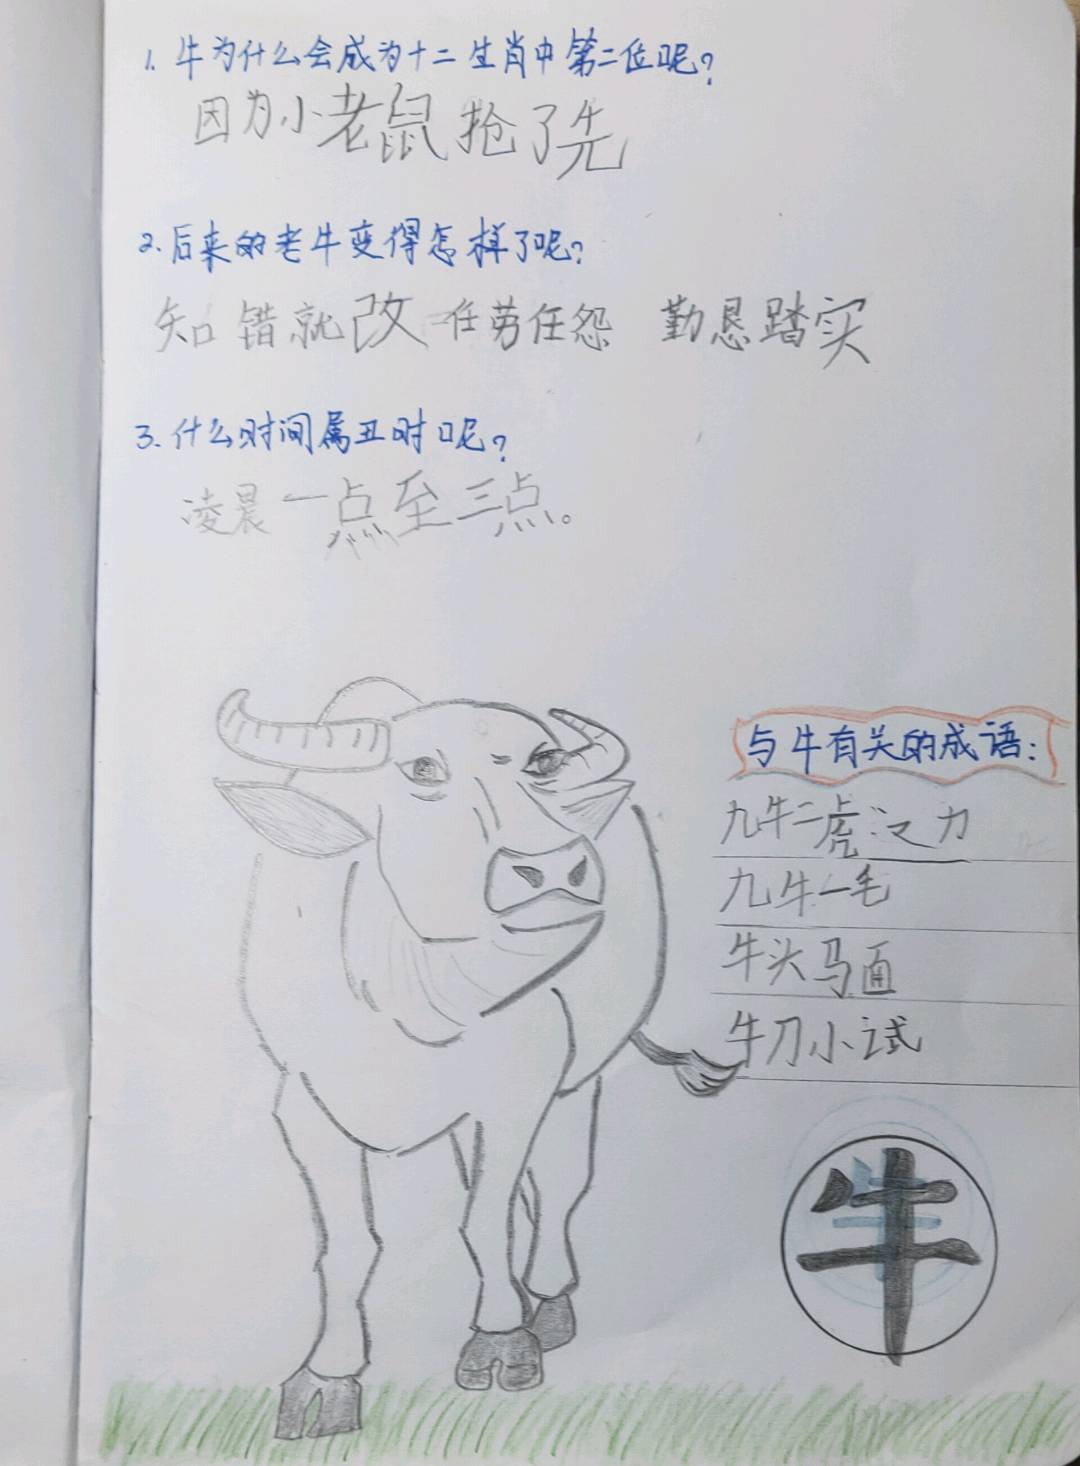 1. 牛为什么会成为十二生肖中第二位呢?
因为小老鼠抢了先
2. 后来的老牛变得怎样了呢?
知错就改 任劳任怨 勤恳踏实
3. 什么时间属丑时呢?
凌晨一点至三点。
与牛有关的成语:
九牛二虎之力
九牛一毛
牛头马面
牛刀小试
牛